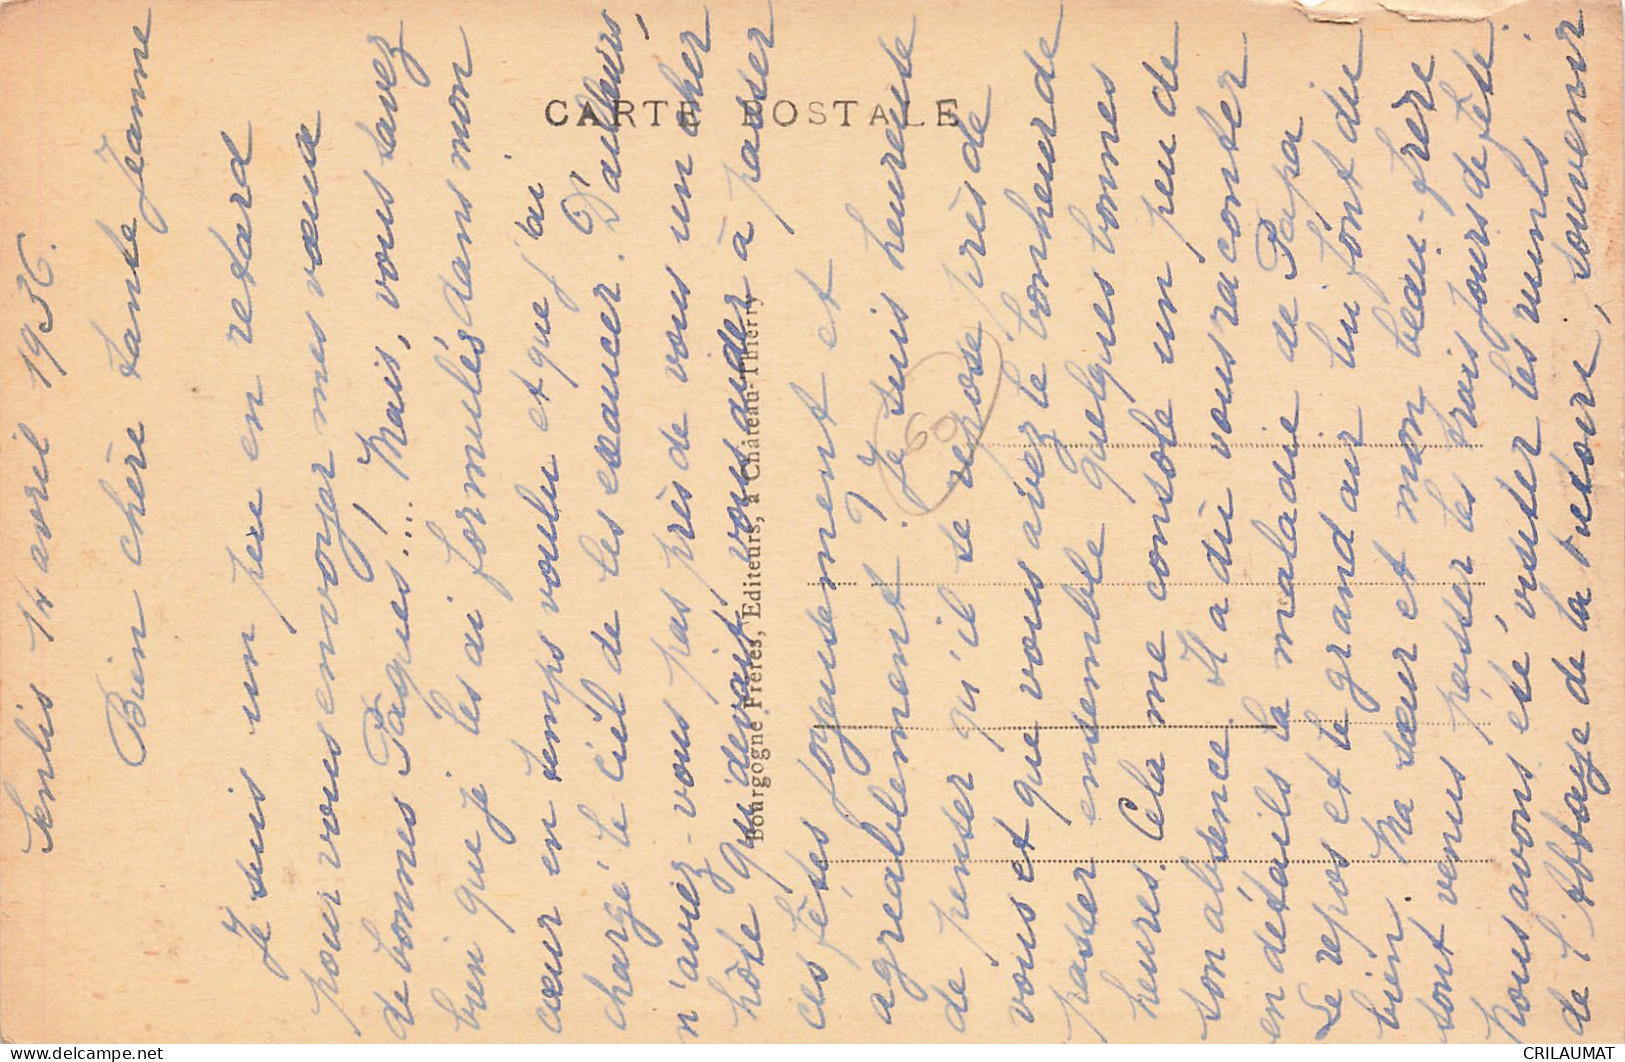 Senlis 14 avril 1936.
Bien chère tante Jeanne
Je suis un peu en retard
pour vous envoyer mes vœux
de bonnes Pâques!... Mais, vous savez
bien que je les ai formulés dans mon
cœur en temps voulu et que j'ai
chargé le ciel de les exaucer. D'ailleurs
n'aviez-vous pas près de vous un cher
hôte qui devait vous aider à passer
ces fêtes joyeusement et
agréablement? Je suis heureuse
de penser qu'il se repose près de
vous et que vous avez le bonheur de
passer ensemble quelques bonnes
heures. Cela me console un peu de
son absence. Il a dû vous raconter
en détails la maladie de Papa
Le repos et le grand air lui font du
bien. Ma sœur et mon beau-frère
sont venus passer les trois jours de fête.
Nous avons été visiter les ruines
de l'Abbaye de la Victoire, souvenir
CARTE POSTALE
Bourgogne Frères, Editeurs, à Château-Thierry
60
CRILAUMAT